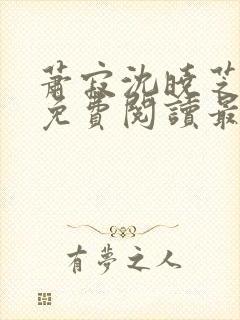 蕭寂沈曉芝
免費閱讀最
有夢之人